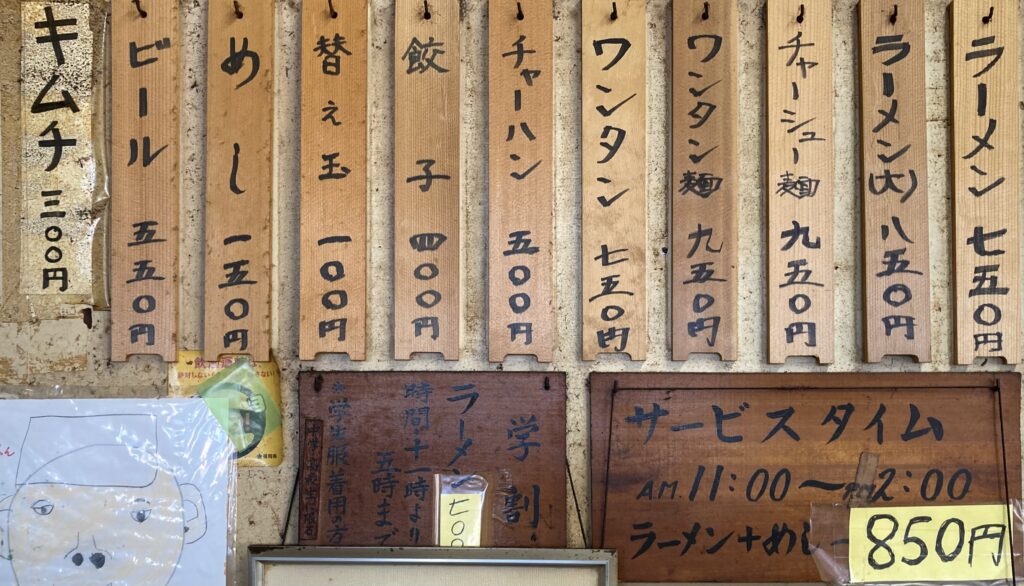 ラーメン 七五〇円
ラーメン(大) 八五〇円
チャーシュー麺 九五〇円
ワンタン麺 九五〇円
ワンタン 七五〇円
チャーハン 五〇〇円
餃子 四〇〇円
替え玉 一〇〇円
めし 一五〇円
ビール 五五〇円
キムチ 三〇〇円
サービスタイム
A.M. 11:00〜2:00
ラーメン+めし
850円
学割
ラーメン
七〇〇
時間・十一時より
五時まで
*学生服着用の方